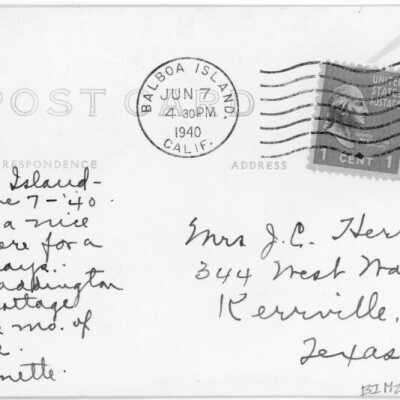 POST CARD
BALBOA ISLAND,
JUN 7
4 30 PM
1940
CALIF.
UNITED
STATES
POSTAGE
1 CENT 1
RESPONDENCE
ADDRESS
Island-
e 7-'40.
a nice
ere for a
ays..
addington
ottage
e mo. of
e.
nette.
Mrs J.C. Her
344 West Wa
Kerrville,
Texas